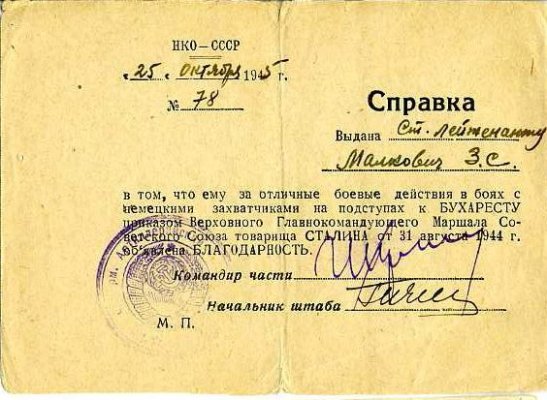 НКО—СССР
„25“ октября 1945 г.
№ 78
Справка
Выдана Ст. лейтенанту
Малкович З.С.
в том, что ему за отличные боевые действия в боях с
немецкими захватчиками на подступах к БУХАРЕСТУ
приказом Верховного Главнокомандующего Маршала Со-
ветского Союза товарища СТАЛИНА от 31 августа 1944 г.
об'явлена БЛАГОДАРНОСТЬ.
Командир части
Начальник штаба
М. П.